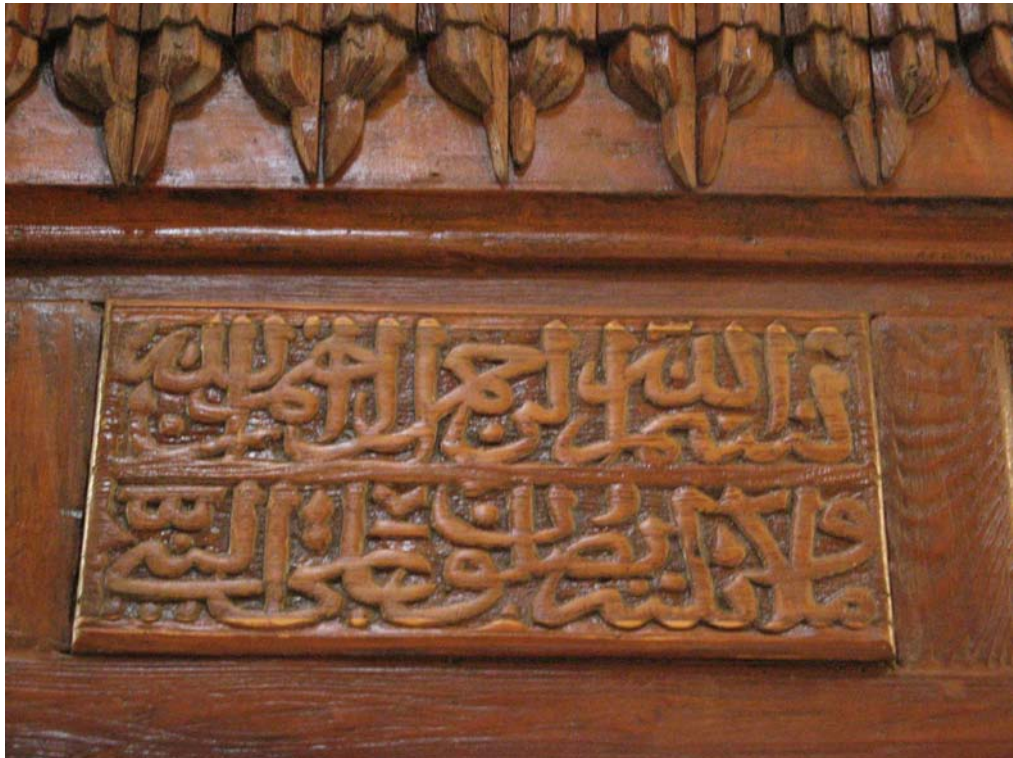 بسم الله الرحمن الرحيم إن الله
وملائكته يصلون على النبي